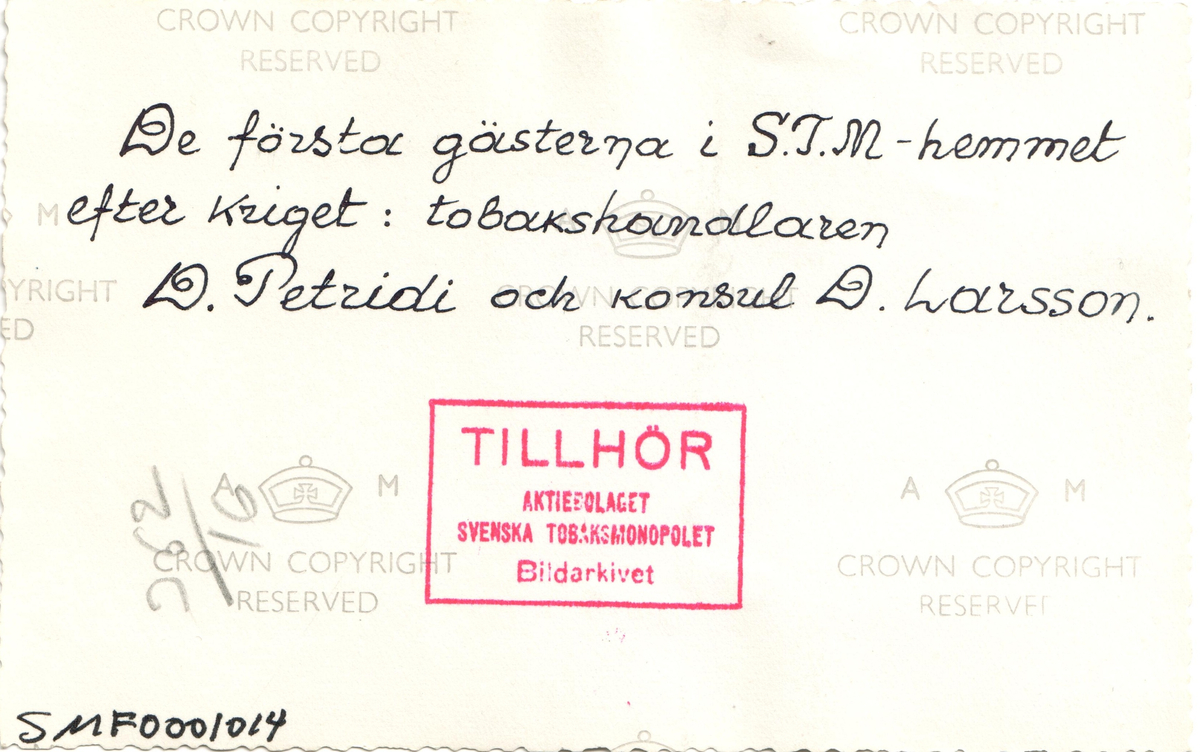 CROWN COPYRIGHT CROWN COPYRIGHT
RESERVED RESERVED
De första gästerna i S.T.M-hemmet
M efter kriget: tobakshandlaren
YRIGHT CROWN COPYRIGHT
D. Petridi och konsul D. Larsson.
ED RESERVED
TILLHÖR
AKTIEBOLAGET
SVENSKA TOBAKSMONOPOLET
Bildarkivet
A M A M
CROWN COPYRIGHT CROWN COPYRIGHT
RESERVED RESERVED
SMF0001014